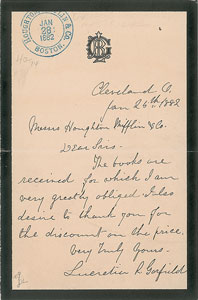 HOUGHTON, MIFFLIN & CO.
JAN
28
1882
BOSTON.
Cleveland O.
Jan 26th 1882
Messrs Houghton Mifflin & Co.
Dear Sirs.
The books are
received for which I am
very greatly obliged. Also
desire to thank you for
the discount on the price.
Very Truly Yours.
Lucretia R. Garfield